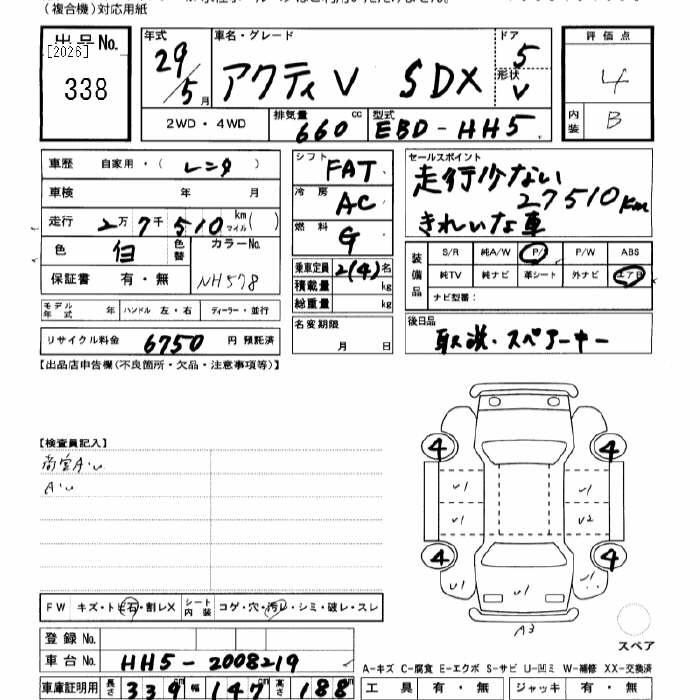 (複合機)対応用紙
出品No.
[2026]
338
年式 29/5月
車名・グレード アクティV SDX
ドア 5
形状 V
評価点 4
内装 B
2WD・4WD
排気量 660cc
型式 EBD-HH5
車歴 自家用・(レンタ)
車検 年 月
走行 2万7千510km マイル( )
色 白 色替 カラーNo. NH578
保証書 有・無
モデル年式 年 ハンドル 左・右 ディーラー・並行
リサイクル料金 6750 円 預託済
シフト FAT
冷房 AC
燃料 G
乗車定員 2(4)名
積載量 kg
総重量 kg
名変期限 月 日
セールスポイント
走行少ない
27510Km
きれいな車
装備品 S/R 純A/W P/ P/W ABS
純TV 純ナビ 革シート 外ナビ エアB
ナビ型番:
後日品
取説・スペアーキー
【出品店申告欄(不良箇所・欠品・注意事項等)】
【検査員記入】
荷室AU
AU
4 4
U1 U1
U1 U2
4 4
U1 U1 U1
A3
スペア
FW キズ・トビ石・割レX シート内装 コゲ・穴・汚レ・シミ・破レ・スレ
登録No.
車台No. HH5-2008219
A-キズ C-腐食 E-エクボ S-サビ U-凹ミ W-補修 XX-交換済
車庫証明用 長さ 339cm 幅 147cm 高さ 188cm
工具 有・無 ジャッキ 有・無